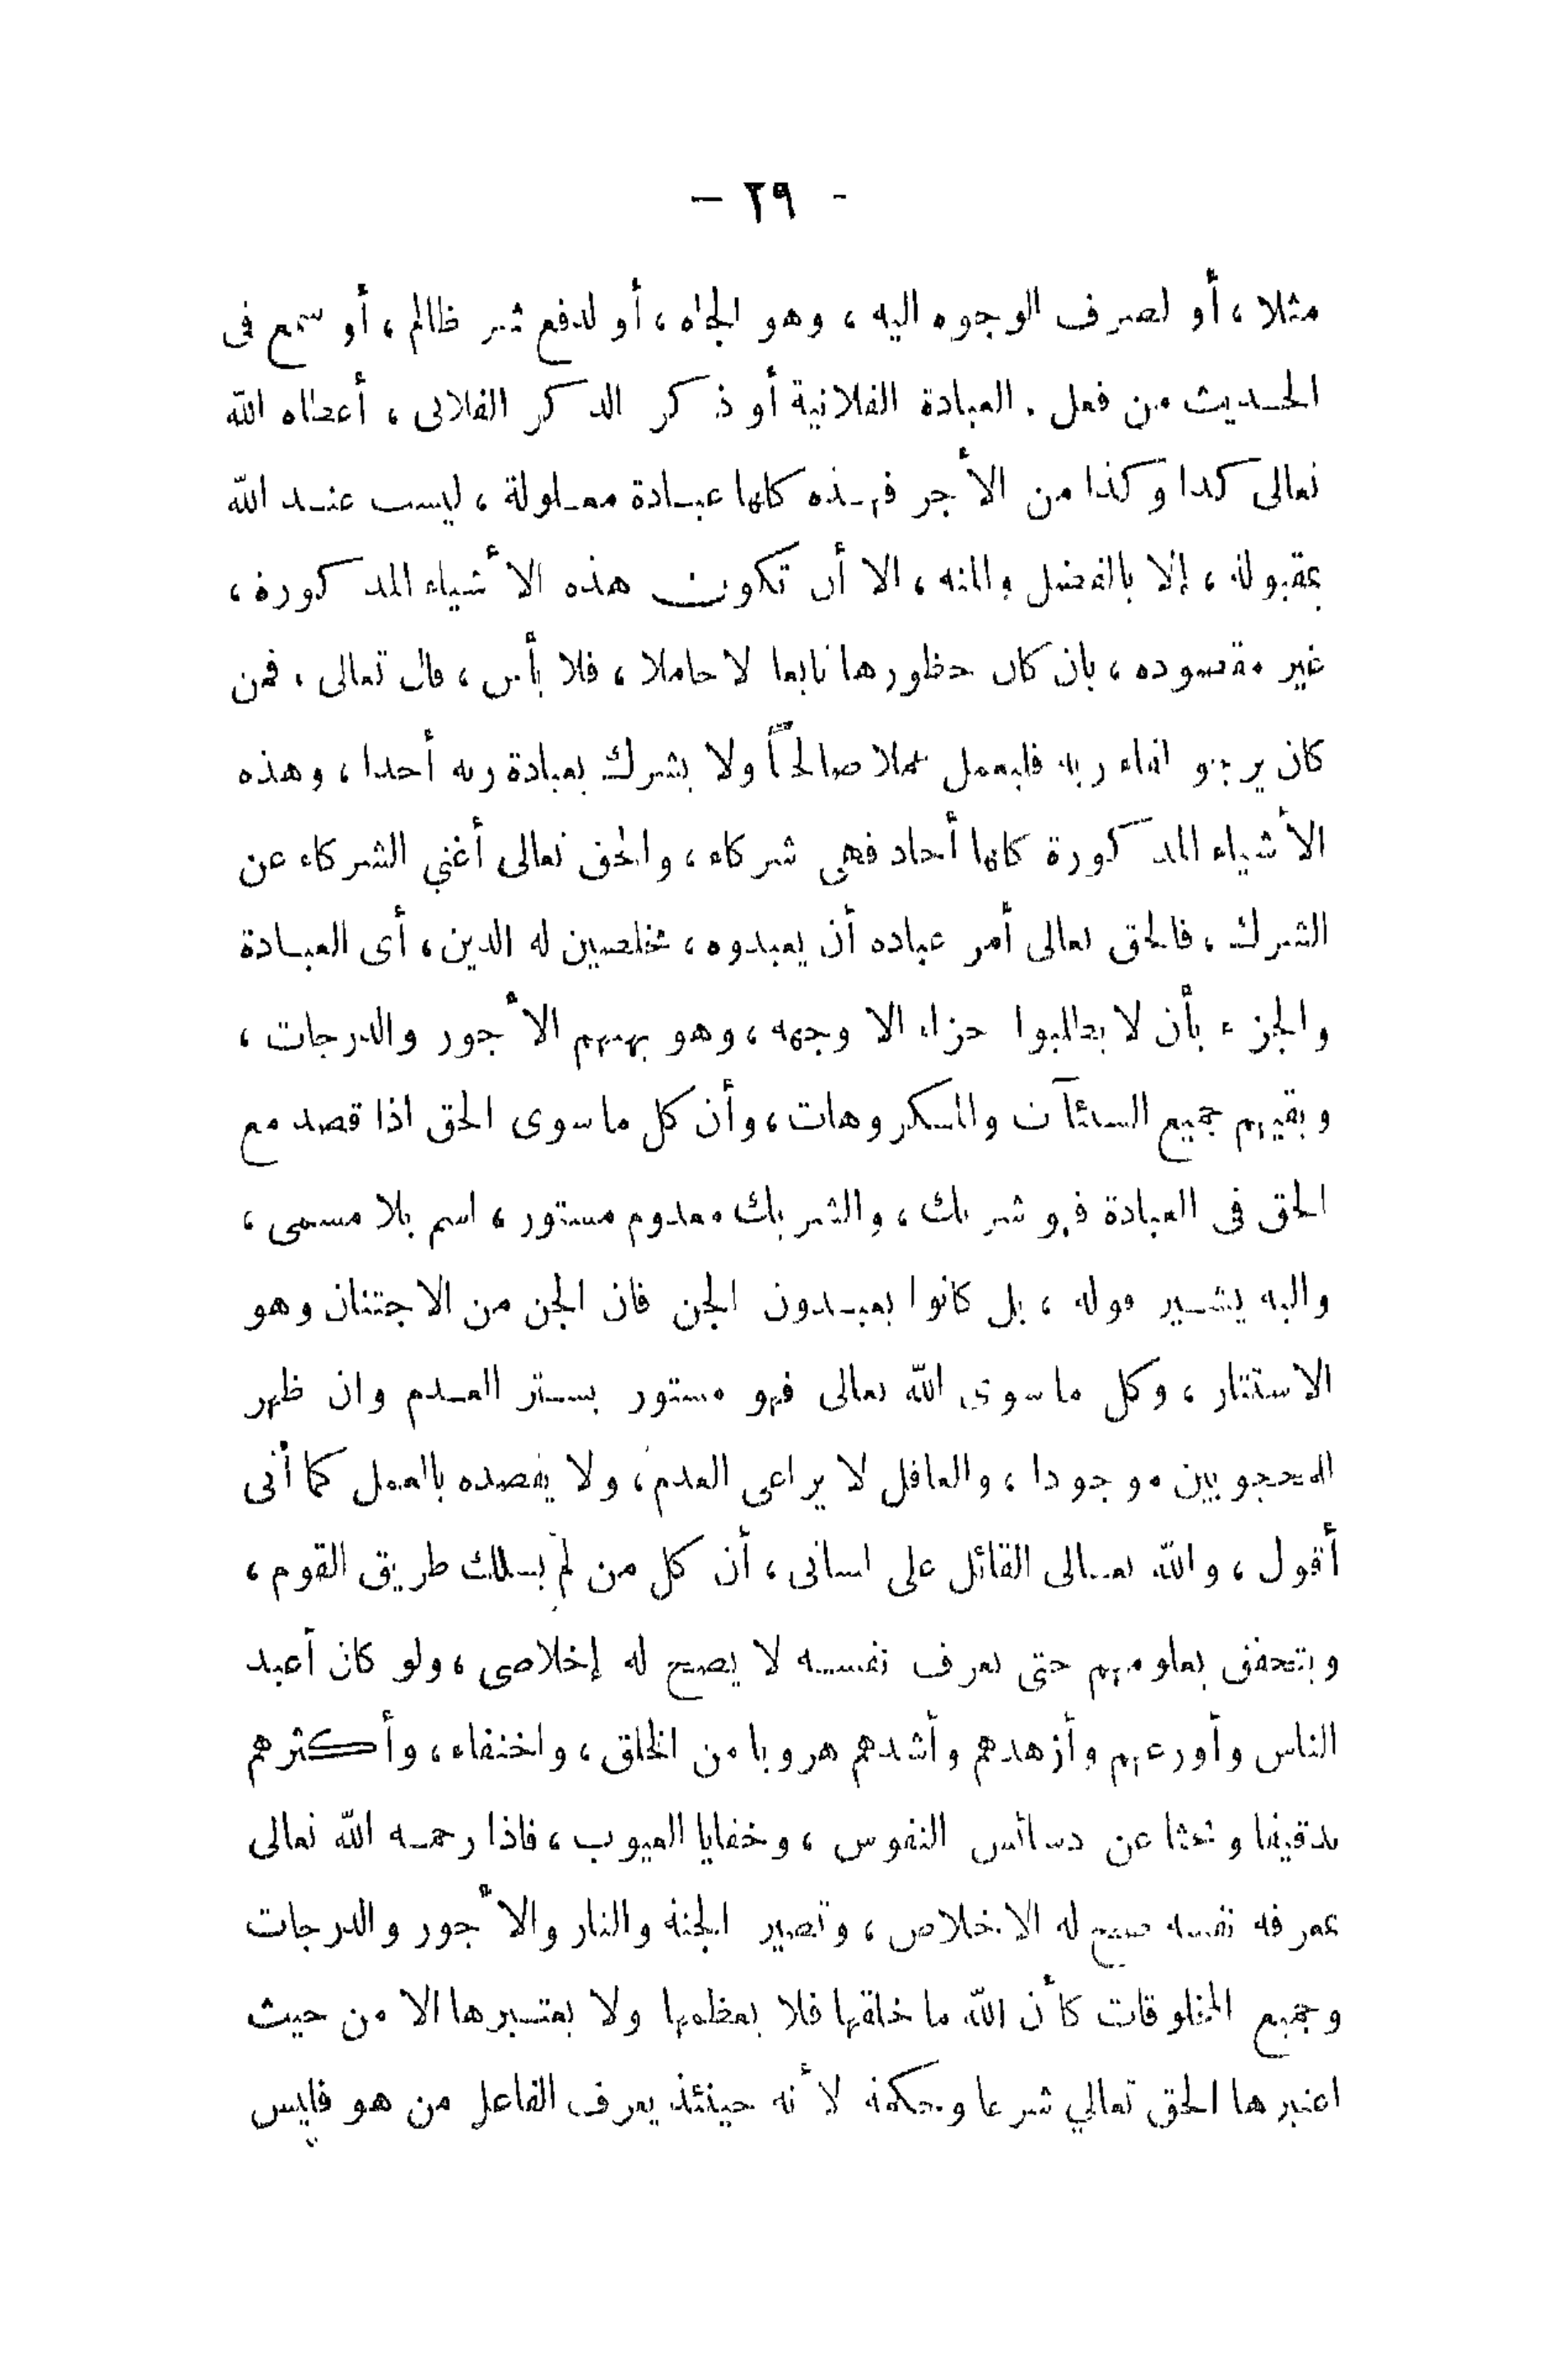 - ٢٩ -
مثلا ، أو لصرف الوجوه اليه ، وهو الجاه ، أو لدفع شر ظالم ، أو سمع فى
الحديث من فعل . العبادة الفلانية أو ذكر الذكر الفلانى ، أعطاه الله
تعالى كذا وكذا من الأجر فهذه كلها عبادة معلولة ، ليست عند الله
بمقبولة ، إلا بالفضل والمنه ، الا أن تكون هذه الأشياء المذكورة ،
غير مقصوده ، بان كان حظورها تابعا لا حاملا ، فلا بأس ، قال تعالى ، فمن
كان يرجو لقاء ربه فليعمل عملا صالحاً ولا يشرك بعبادة ربه أحدا ، وهذه
الأشياء المذكورة كلها أحاد فهى شركاء ، والحق تعالى أغني الشركاء عن
الشرك ، فالحق تعالى أمر عباده أن يعبدوه ، مخلصين له الدين ، أى العبادة
والجزء بأن لا يطلبوا جزاء الا وجهه ، وهو يهبهم الأجور والدرجات ،
ويقيهم جميع السئآت والمكروهات ، وأن كل ماسوى الحق اذا قصد مع
الحق فى العبادة فهو شريك ، والشريك معدوم مستور ، اسم بلا مسمى ،
واليه يشير قوله ، بل كانوا يعبدون الجن فان الجن من الاجتنان وهو
الاستتار ، وكل ماسوى الله تعالى فهو مستور بستر العدم وان ظهر
للمحجوبين موجودا ، والعاقل لا يراعى العدم ، ولا يقصده بالعمل كما أنى
أقول ، والله تعالى القائل على لسانى ، أن كل من لم يسلك طريق القوم ،
ويتحقق بعلومهم حتى يعرف نفسه لا يصح له إخلاص ، ولو كان أعبد
الناس وأورعهم وأزهدهم وأشدهم هروبا من الخلق ، واختفاء ، وأكثرهم
تدقيقا وبحثا عن دسائس النفوس ، وخفايا العيوب ، فاذا رحمه الله تعالى
بمعرفه نفسه صح له الاخلاص ، وتصير الجنة والنار والأجور والدرجات
وجميع المخلوقات كأن الله ما خلقها فلا يعظمها ولا يعتبرها الا من حيث
اعتبرها الحق تعالي شرعا وحكمة لأنه حينئذ يعرف الفاعل من هو فليس